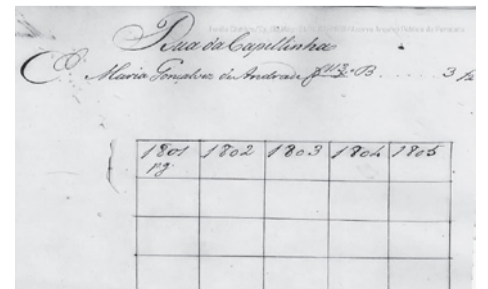 Rua da Capellinha
Maria Gonçalves de Andrade B. . . . . 3 ½
1801 1802 1803 1804 1805
pg.